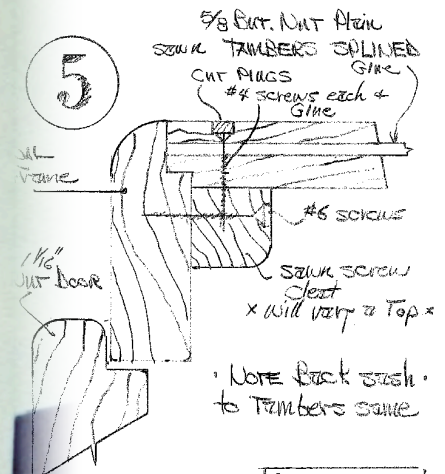 5/8 BUT. NUT Plain
sawn TAMBERS SPLINED
Glue
CUT PLUGS
#4 screws each &
Glue
5
Frame
#6 screws
sawn screw
Cleat
* will vary @ Top *
1/16"
NUT DOOR
• NOTE Back sash •
to Tambers same